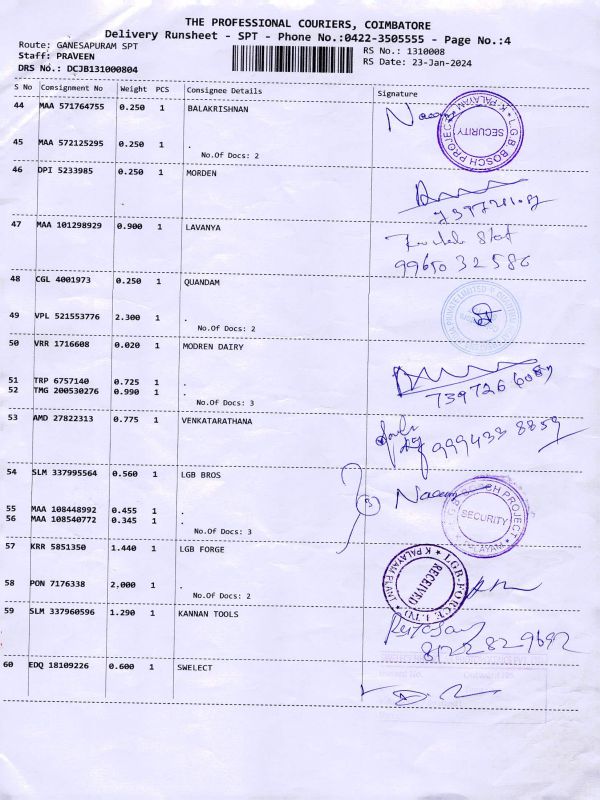 THE PROFESSIONAL COURIERS, COIMBATORE
Delivery Runsheet - SPT - Phone No.:0422-3505555 - Page No.:4
Route: GANESAPURAM SPT RS No.: 1310008
Staff: PRAVEEN RS Date: 23-Jan-2024
DRS No.: DCJB131000804
S No Consignment No Weight PCS Consignee Details Signature
44 MAA 571764755 0.250 1 BALAKRISHNAN
L.G.B BOSCH PROJECT K-PALAYAM SECURITY
45 MAA 572125295 0.250 1 .
No.Of Docs: 2
46 DPI 5233985 0.250 1 MORDEN
47 MAA 101298929 0.900 1 LAVANYA
99650 32586
48 CGL 4001973 0.250 1 QUANDAM
49 VPL 521553776 2.300 1 .
No.Of Docs: 2
50 VRR 1716608 0.020 1 MODREN DAIRY
51 TRP 6757140 0.725 1 .
52 TMG 200530276 0.990 1 .
No.Of Docs: 3
53 AMD 27822313 0.775 1 VENKATARATHANA
999433 8859
54 SLM 337995564 0.560 1 LGB BROS
3 Naseem
L.G.B BOSCH PROJECT K-PALAYAM SECURITY
55 MAA 108448992 0.455 1 .
56 MAA 108540772 0.345 1 .
No.Of Docs: 3
57 KRR 5851350 1.440 1 LGB FORGE
LGB-FORGE LTD K PALAYAM PLANT RECEIVED
58 PON 7176338 2,000 1 .
No.Of Docs: 2
59 SLM 337960596 1.290 1 KANNAN TOOLS
8122829692
60 EDQ 18109226 0.600 1 SWELECT